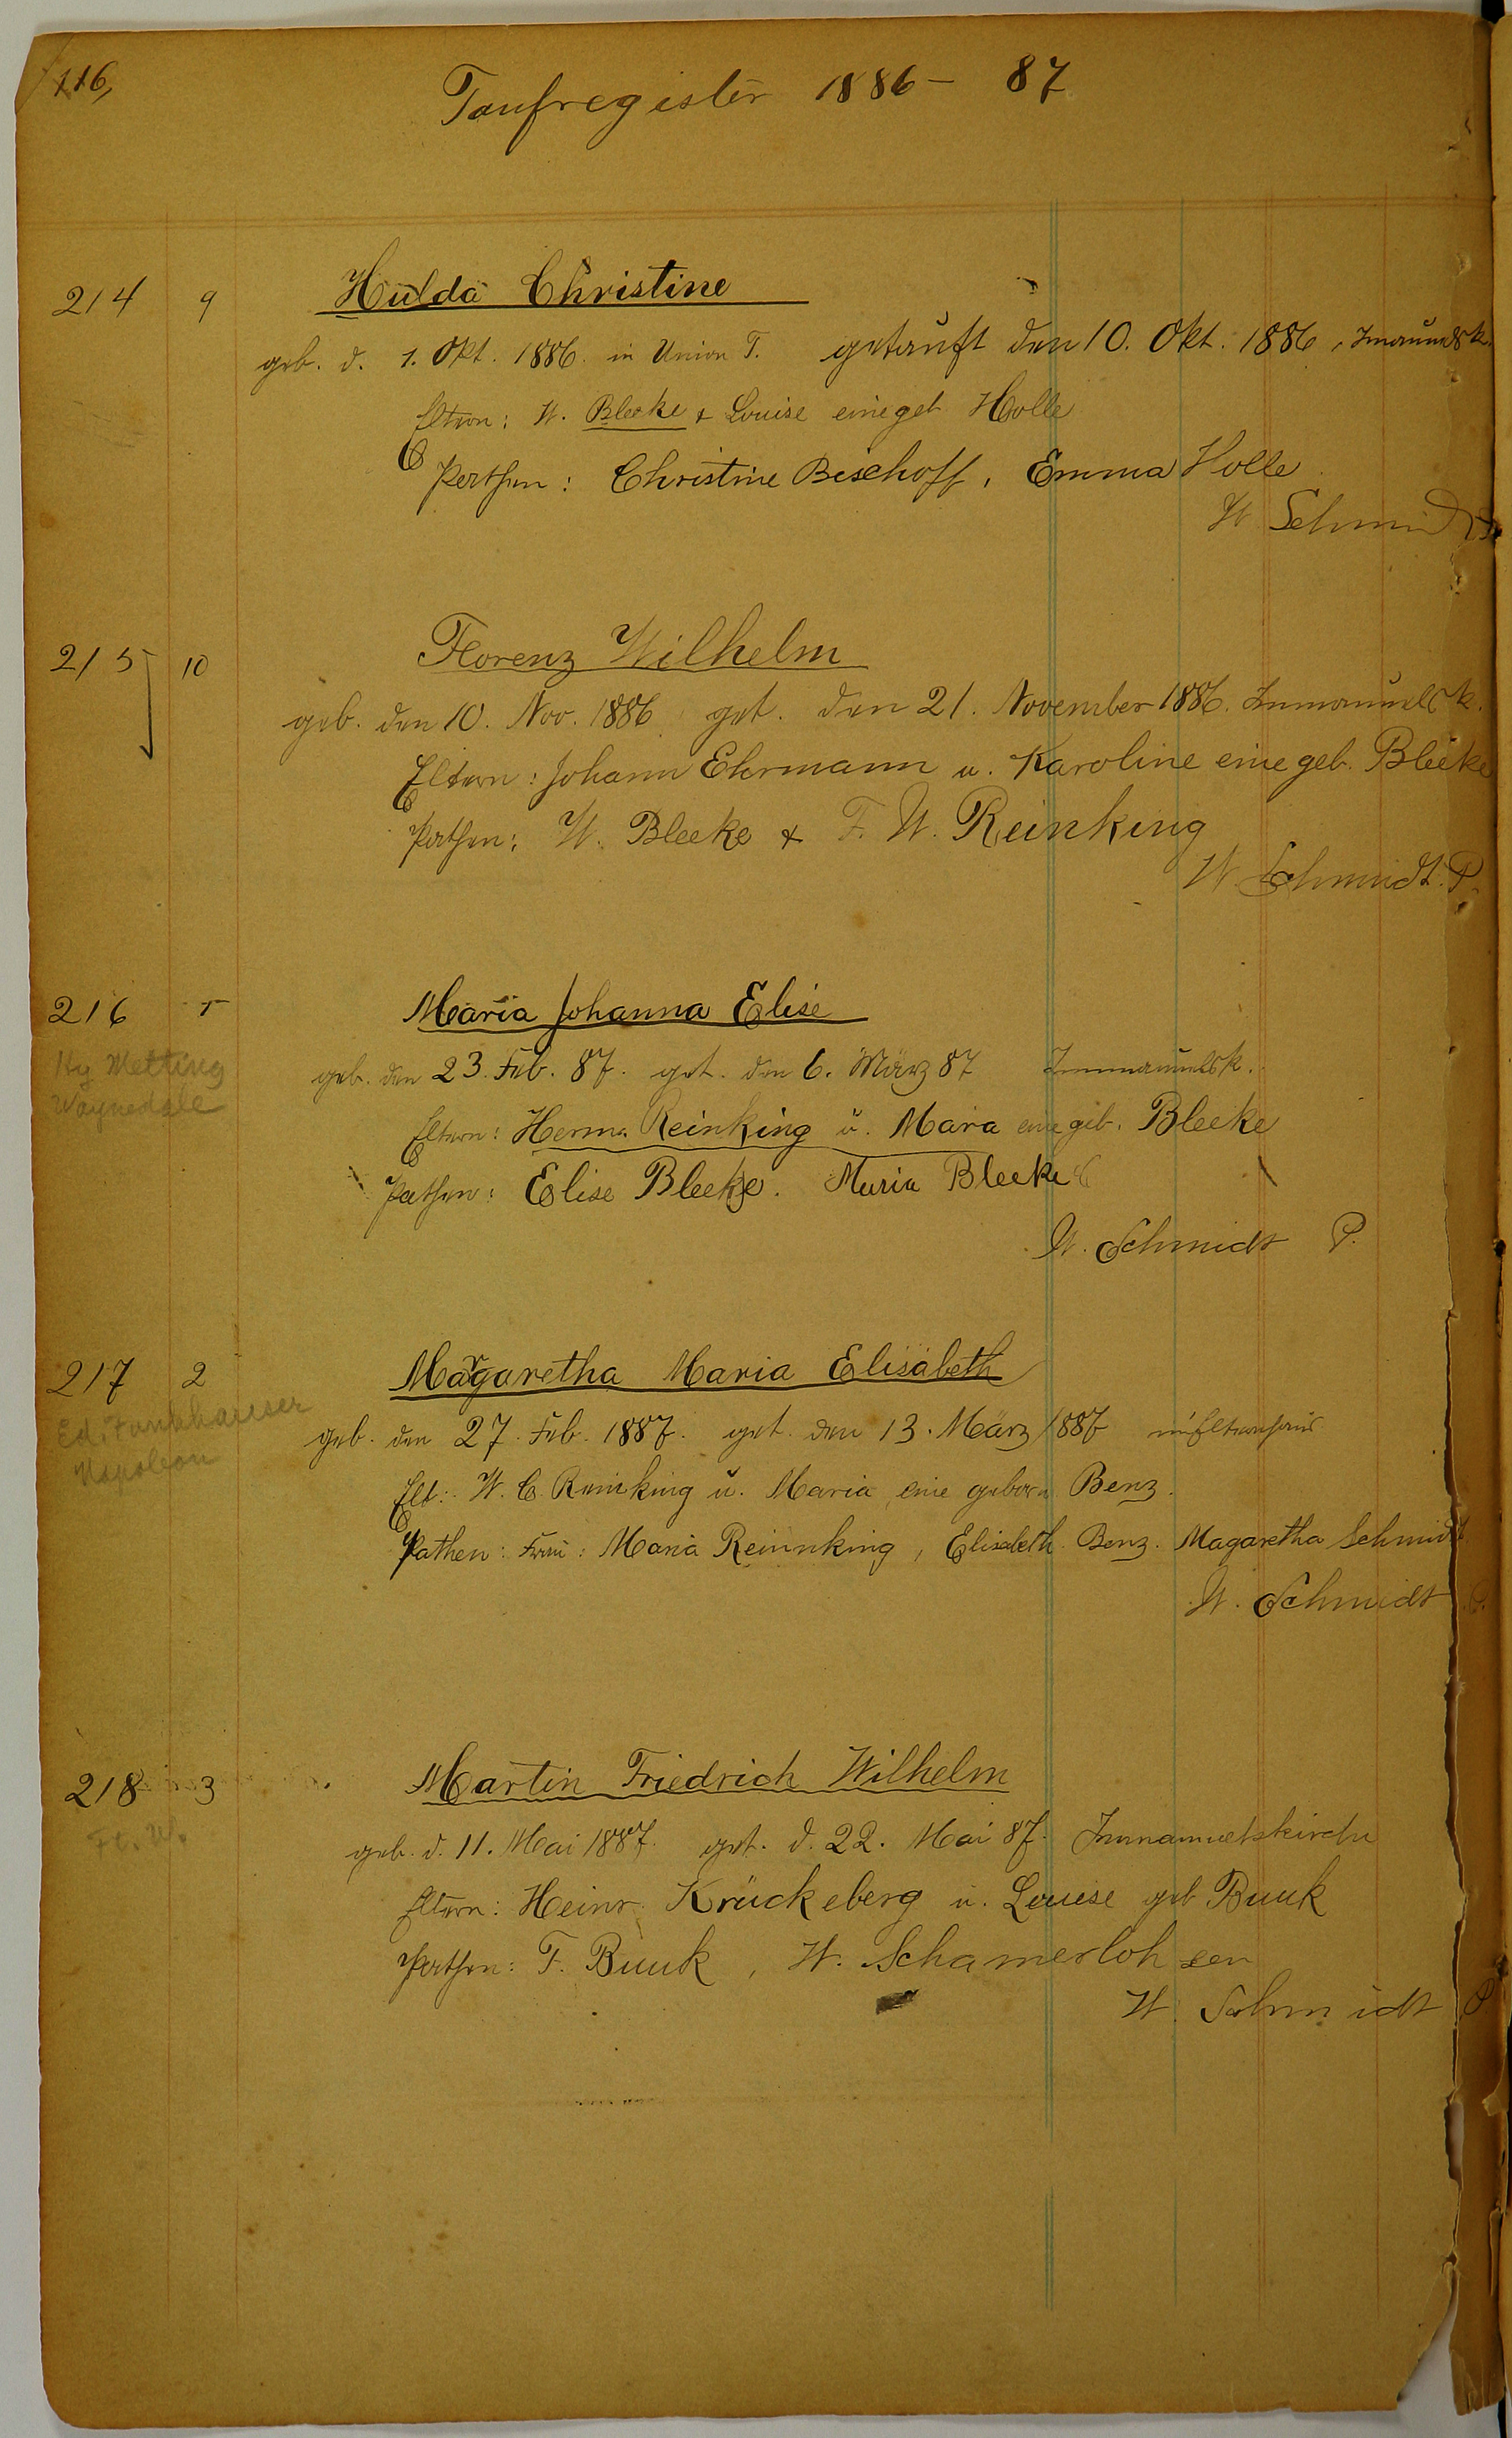 116,
Taufregister 1886 – 87
214 9 Hulda Christine
geb. d. 1. Okt. 1886. in Union T. getauft den 10. Okt. 1886,
Eltern: W. Bleeke & Louise eine geb Holle
Pathen: Christine Bischoff, Emma Holle
W Schmidt
215 10 Florenz Wilhelm
geb. den 10. Nov. 1886 get. den 21. November 1886. Immanuelsk.
Eltern: Johann Ehrmann u. Karoline eine geb. Bleeke
Pathen: W. Bleeke & F. W. Reinking
W Schmidt. P.
216 1 Maria Johanna Elise
Hy Metting
Waynedale
geb. den 23. Feb. 87. get. den 6. März 87 Immanuelsk.
Eltern: Herm. Reinking u. Maria eine geb. Bleeke
Pathen: Elise Bleeke. Maria Bleeke
W. Schmidt P.
217 2 Margaretha Maria Elisabeth
Ed. Funkhauser
Napoleon
geb. den 27. Feb. 1887. get. den 13. März 1887 im Elternhaus
Elt: W. C. Reinking u. Maria, eine geborn Benz.
Pathen: Frau: Maria Reinnking, Elisabeth Benz. Magaretha Schmidt
W. Schmidt P.
218 3 Martin Friedrich Wilhelm
Ft. W.
geb. d. 11. Mai 1887. get. d. 22. Mai 87. Immanuelskirche
Eltern: Heinr. Krückeberg u. Louise geb Buuk
Pathen: F. Buuk, W. Schamerloh sen
W. Schmidt P